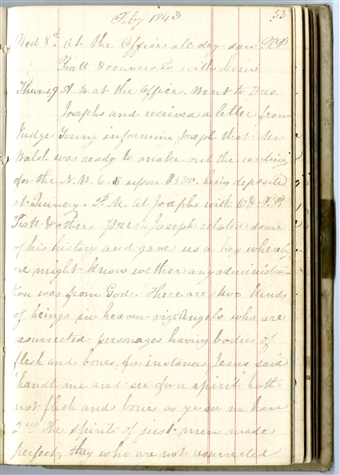 Feby 1843
53
Wed 8th. At the Office all day. saw P. P.
Pratt & conversed with him
Thurs 9 A. M. at the Office. Went to Pres.
Josephs and received a letter from
Judge Young informing Joseph that Mr
Walsh was ready to make out the
for the N. W. ¼ 5 upon $ being deposited
at Quincy. P. M. At Josephs with O & P. P.
Pratt & others. Pres. Joseph related some
of his history and gave us a key whereby
we might know wether any administra-
tion was from God. There are two kinds
of beings in heaven viz. Angels who are
resurrected personages having bodies of
flesh and bones, for instance, Jesus said
"handle me and see for a spirit hath
not flesh and bones as ye see me have
2nd the spirits of just men made
perfect, they who are not resurrected